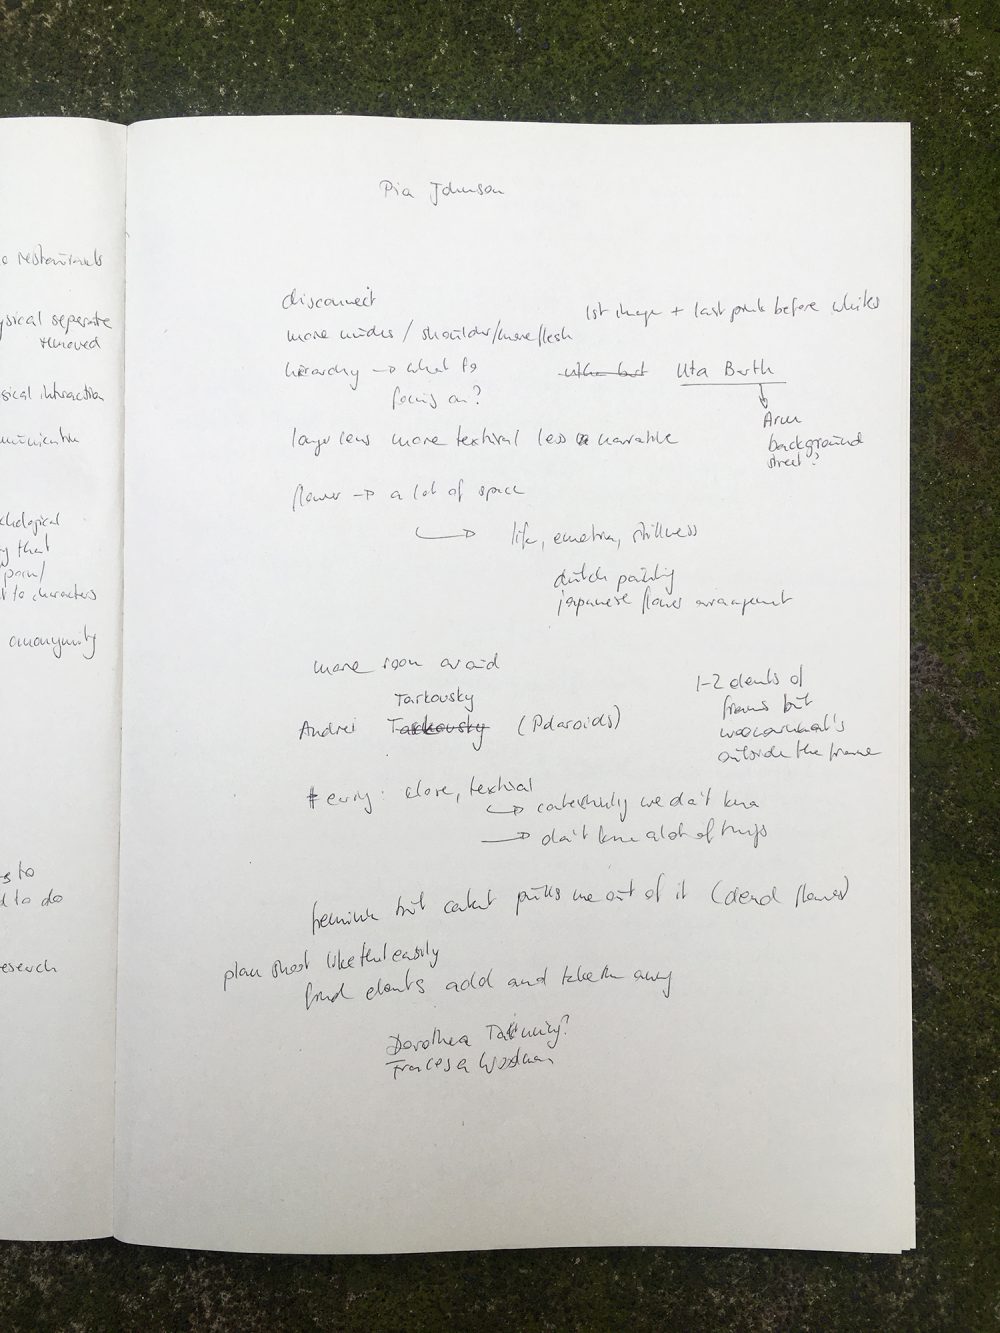 o restaurants
ysical seperate
removed
sical interaction
chological
y that
porn/
t to characters
anonymity
s to
d to do
esearch
Pia Johnson
disconnect
1st image + last pink before whites
more nudes / shoulder/more flesh
hierarchy → what to
focus on?
Uta Barth
Arun
background
street?
larger lens more textural less narrative
flower → a lot of space
life, emotion, stillness
dutch painting
japanese flower arrangement
more room around
Tarkovsky
Andrei Tarkovsky (Polaroids)
1-2 elements of
frames but
outside the frame
eerie: close, textural
contextually we don't know
don't know a lot of things
feminine but content pulls me out of it (dead flower)
plan shoot like that easily
find elements add and take them away
Dorothea Tanning?
Francesca Woodman